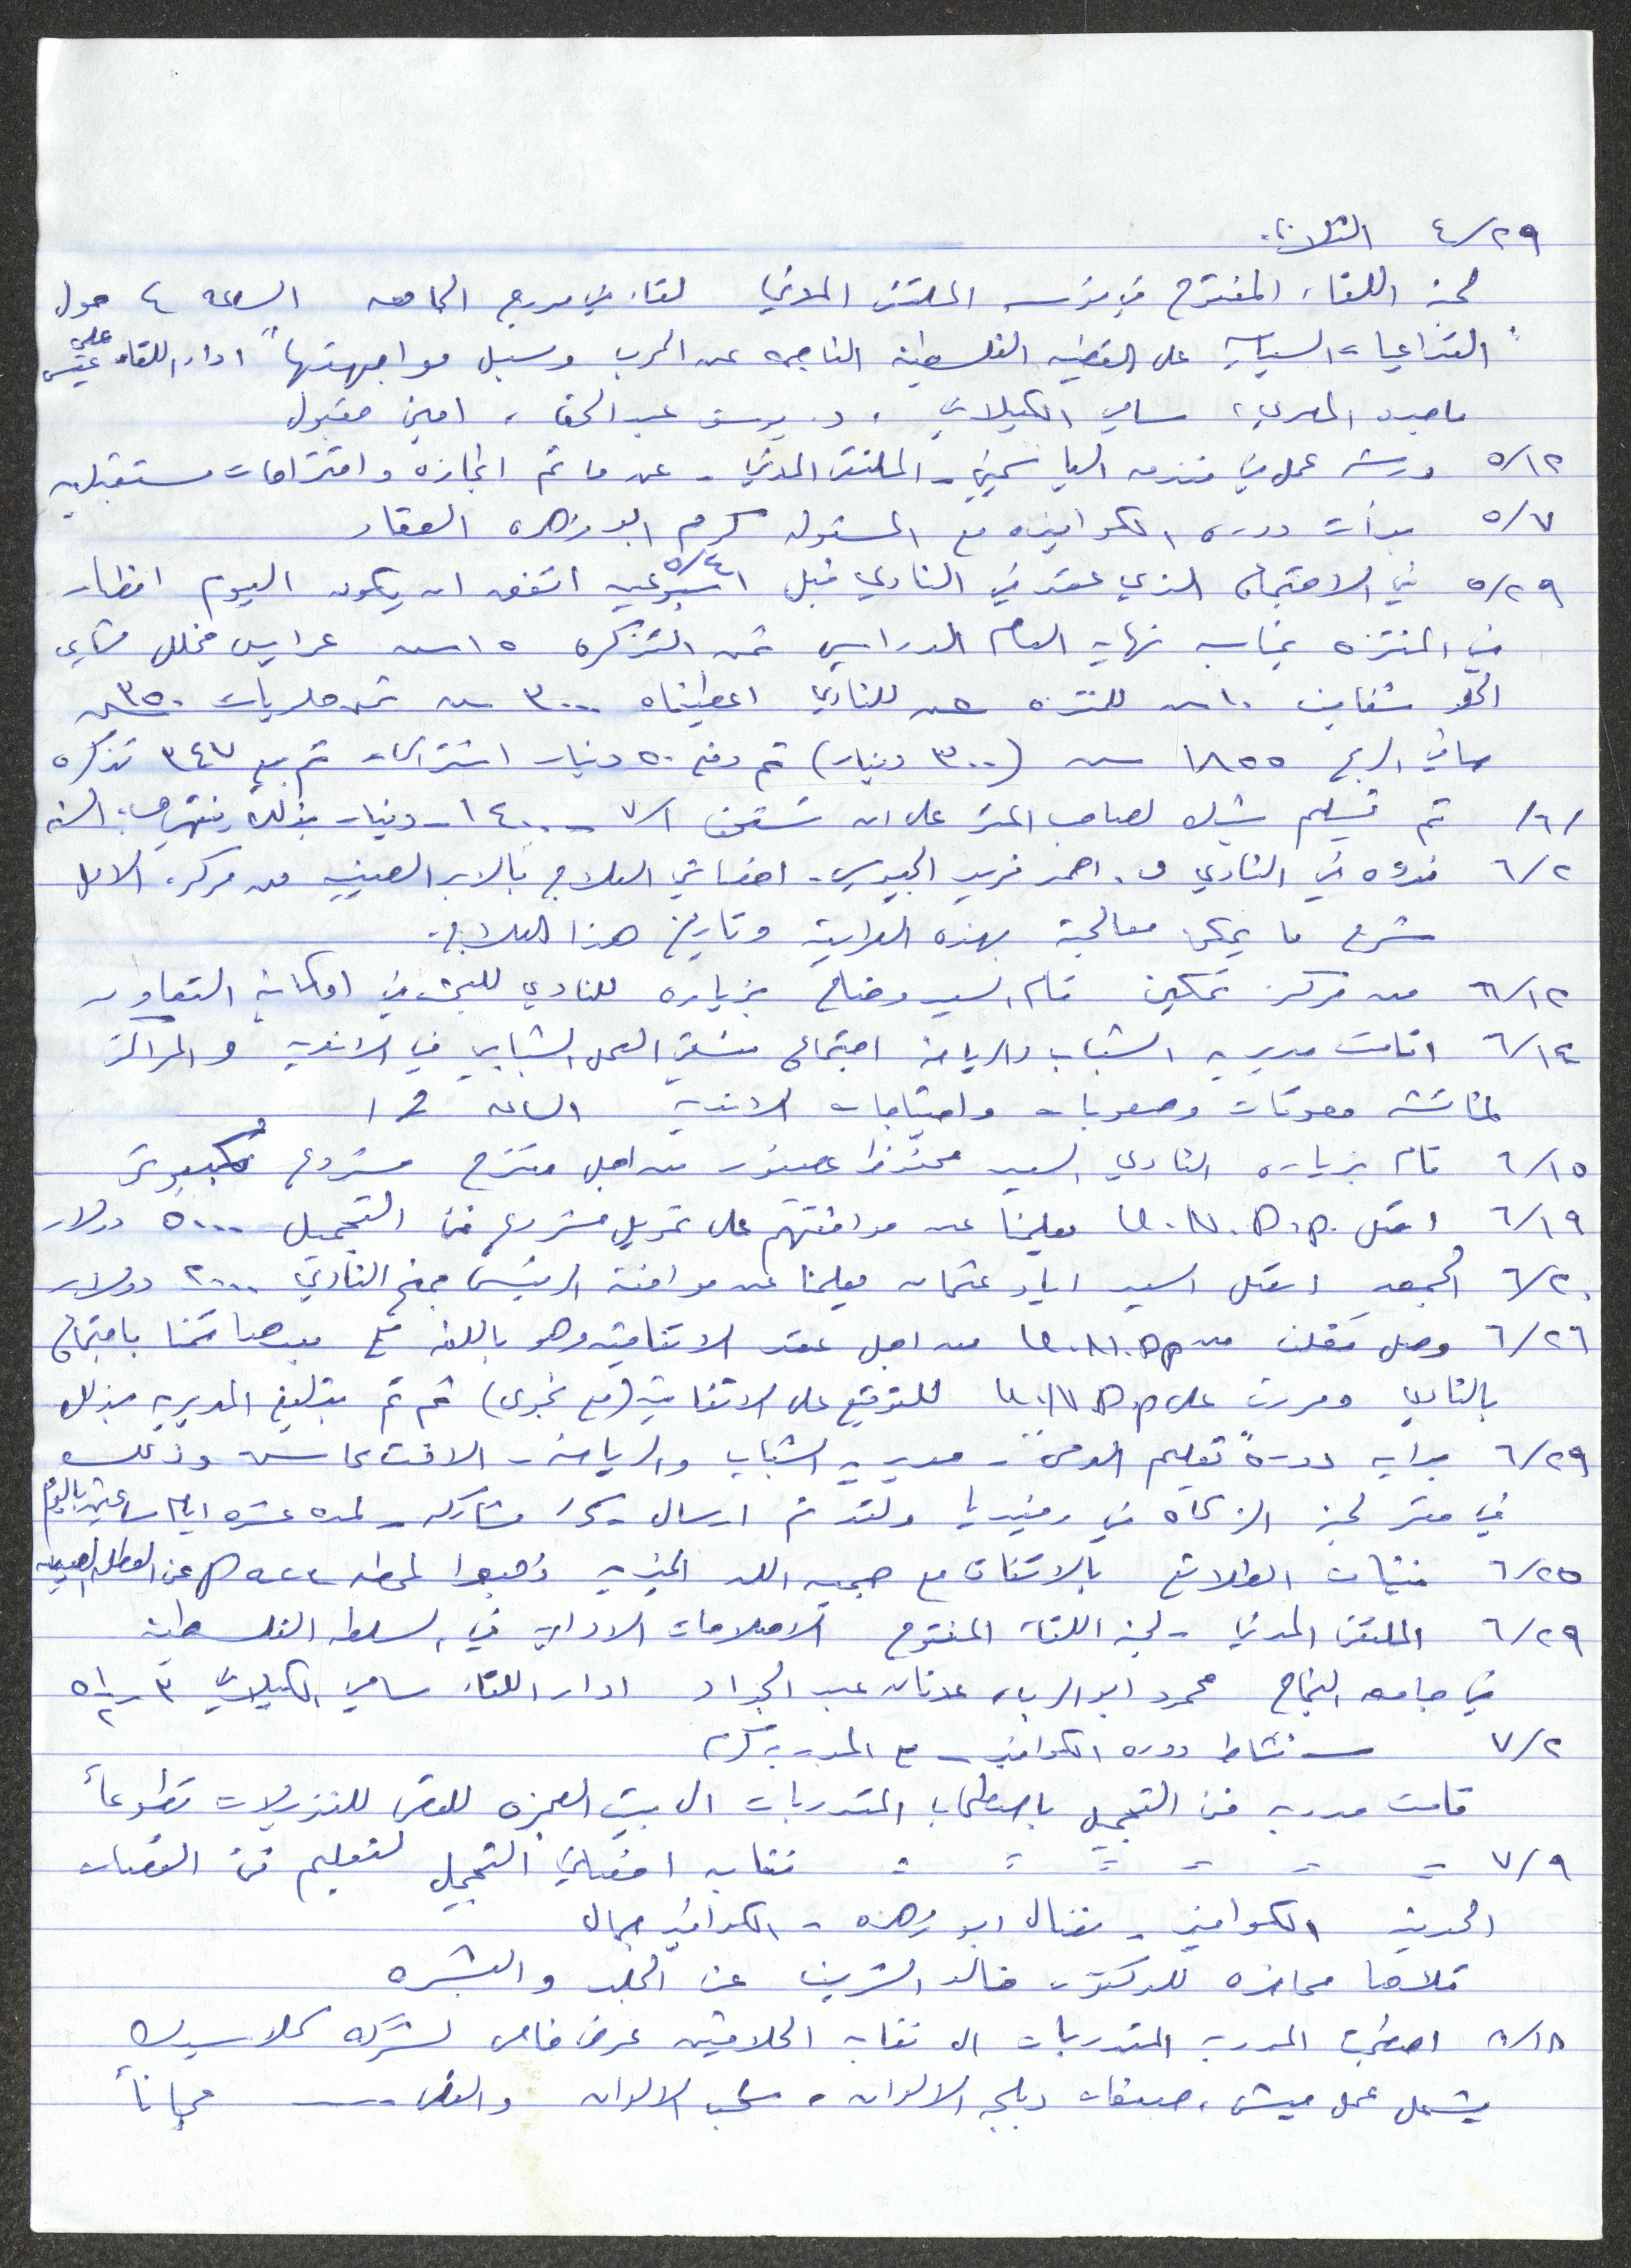 ٤/٢٩ الثلاثاء
لجنة اللقاء المفتوح في مؤسسة الملتقى المدني لقاء في مدرج الجامعه الساعه ٤ حول
"التداعيات السياسيه على القضيه الفلسطينة الناجمه عن الحرب وسبل مواجهتها" ادار اللقاء علي
ماجده المصري، سامي الكيلاني، د. يوسف عبد الحق، امين مقبول
٥/١٢ ورشة عمل في فندق الياسمين - الملتقى المدني - عن ما تم انجازه واقتراحات مستقبليه
٥/٧ بدأت دورة الكوافيره مع المسئوله كرم ابو زهره العقاد
٥/٢٩ في الاجتماع الذي عقد في النادي قبل اسبوعين ٥/٤ اتفق ان يكون اليوم افطار
في المنتزه بمناسبه نهاية العام الدراسي ثمن التذكره ١٥ ش عرايس مخلل شاي
١٠ ش للمنتزه للنادي اعطيناه ٣٠٠٠ ش ثمن ٣٥٠ ش
صافي الربح ١٨٥٥ ش (٣٠٠ دينار) تم دفع ٥٠ دينار اشتراك تم بيع ٣٤٧ تذكره
/٦/ تم تسليم شيك لصاحب المقر على ان تستحق ٧/١ - ١٤٠٠ دينار بذلك السنه
٦/٢ ندوه في النادي د. احمد فريد الجيوسي - اخصائي العلاج بالابر الصينيه من مركز الامل
شرح ما يمكن معالجة بهذه الطريقة وتاريخ هذا العلاج.
٦/١٢ من مركز تمكين قام السيد وضاح بزياره للنادي للبحث في امكانية التعاون
٦/١٤ اقامت مديريه الشباب والرياضة اجتماع منسقي العمل الشبابي في الانديه والمراكز
لمناقشه معوقات وصعوبات واحتياجات الانديه الساعه ١
٦/١٥ قام بزياره النادي السيد محفوظ عصفور من اجل مقترح مشروع كمبيوتر
٦/١٩ اتصل U.N.D.P. يعلمنا عن موافقتهم على تمويل مشروع فن التجميل ٥٠٠٠ دولار
٦/٢٠ الجمعه اتصل السيد اياد عثمان يعلمنا عن موافقة الرئيس بمنح النادي ٢٠٠٠ دولار
٦/٢٦ وصل مغلف من U.N.DP من اجل عقد الاتفاقيه وهو باللغه بعدها قمنا باجتماع
بالنادي ومررت على U.N.D.P للتوقيع على الاتفاقية (مع نجوى) ثم تم تبليغ المديريه بذلك
٦/٢٩ بداية دورة "تعليم الدمى" - مديرية الشباب والرياضة - الافتتاح وذلك
في مقر لجنة الزكاة في رفيديا ولقد تم ارسال مشاركه - لمده عشره ايام ساعتين باليوم
٦/٢٥ فتيات الطلائع بالاتفاق مع جمعيه اللد الخيريه ذهبوا لمحطه عن العطله الصيفيه
٦/٢٩ الملتقى المدني - لجنة اللقاء المفتوح الاصلاحات الادارية في السلطه الفلسطينة
في جامعه النجاح محمود ابو الرب، عدنان عبد الجواد ادار اللقاء سامي الكيلاني ٣ - ٥ ١/٢
٧/٢ نشاط دوره الكوافير - مع المدربه كرم
قامت مدربه فن التجميل باصطحاب المتدربات الى بيت العجزه للقص للنزيلات تطوعاً
٧/٩ = = = = = = نقابه اخصائي التجميل لتعليم فن القصات
الحديثه الكوافير - نضال ابو زهره - الكوافير جمال
تلاها محاضره للدكتور خالد الشريف عن الجلد والبشره
٨/١٨ اصطحبت المدربه المتدربات الى نقابه الحلاقين عرض خاص لشركة كلاسيك
يشمل عمل ميش، صبغات دمج الالوان، سحب الالوان والقص مجاناً